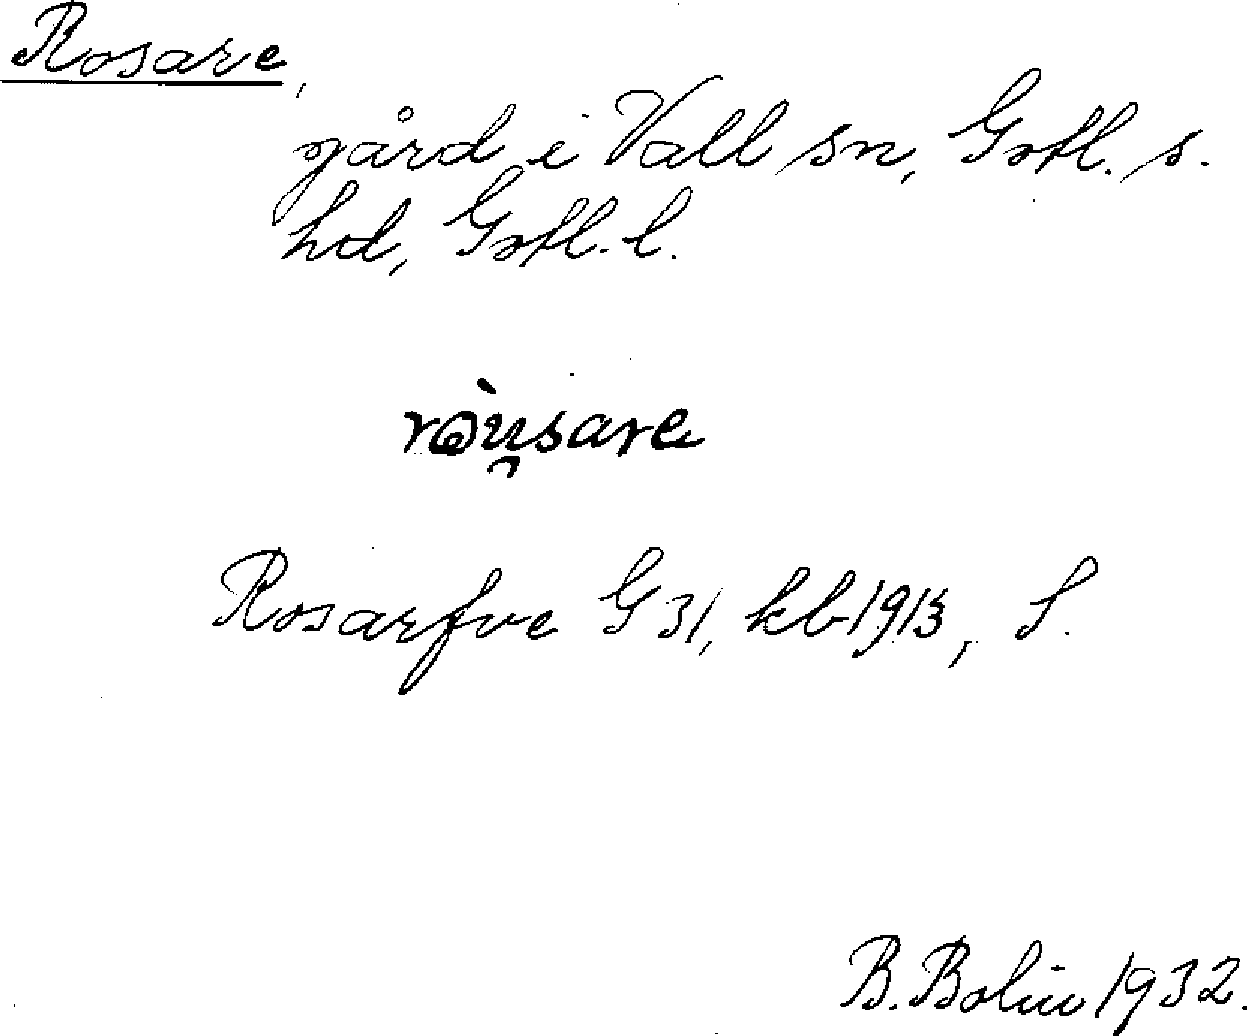 Rosare,
gård i Vall sn, Gotl. s.
hd, Gotl. l.
Rosarfve G 31, kb 1913, S.
B. Bolin 1932.